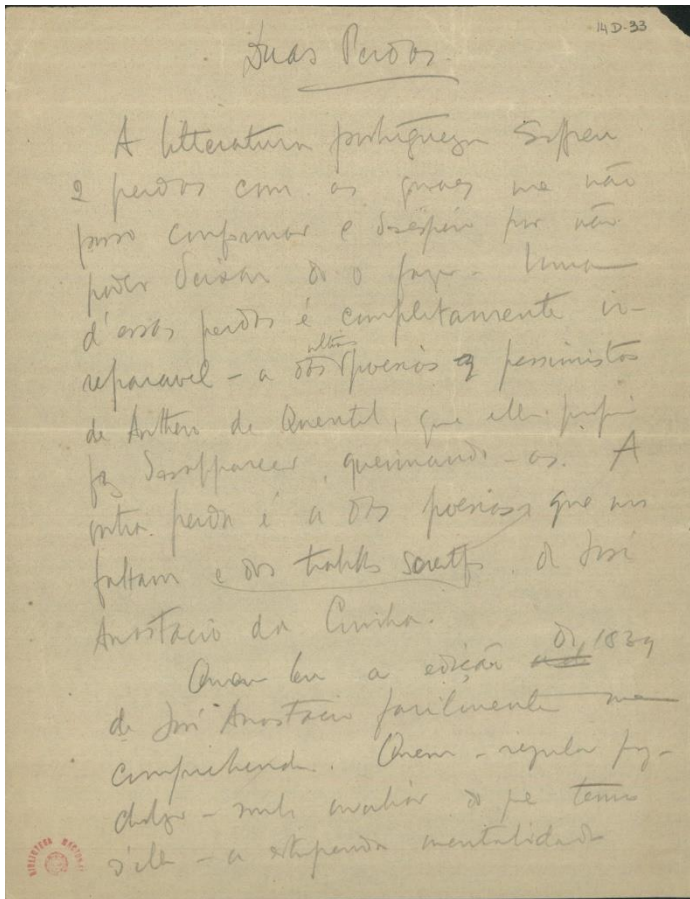 14D-33
Duas Perdas.
A litteratura portugueza soffreu
2 perdas com as quaes me não
posso conformar e desespero por não
poder deixar de o fazer. Uma
d'essas perdas é completamente ir-
reparavel - a das ultimas poesias pessimistas
de Anthero de Quental, que elle proprio
fez desapparecer, queimando-as. A
outra perda é a das poesias que nos
faltam e dos trabalhos scientf. de José
Anastacio da Cunha.
Quem leu a edição de 1839
de José Anastacio facilmente me
comprehende. Quem - regular psy-
chologo - souber avaliar do que temos
d'elle - a estupenda mentalidade
BIBLIOTECA NACIONAL